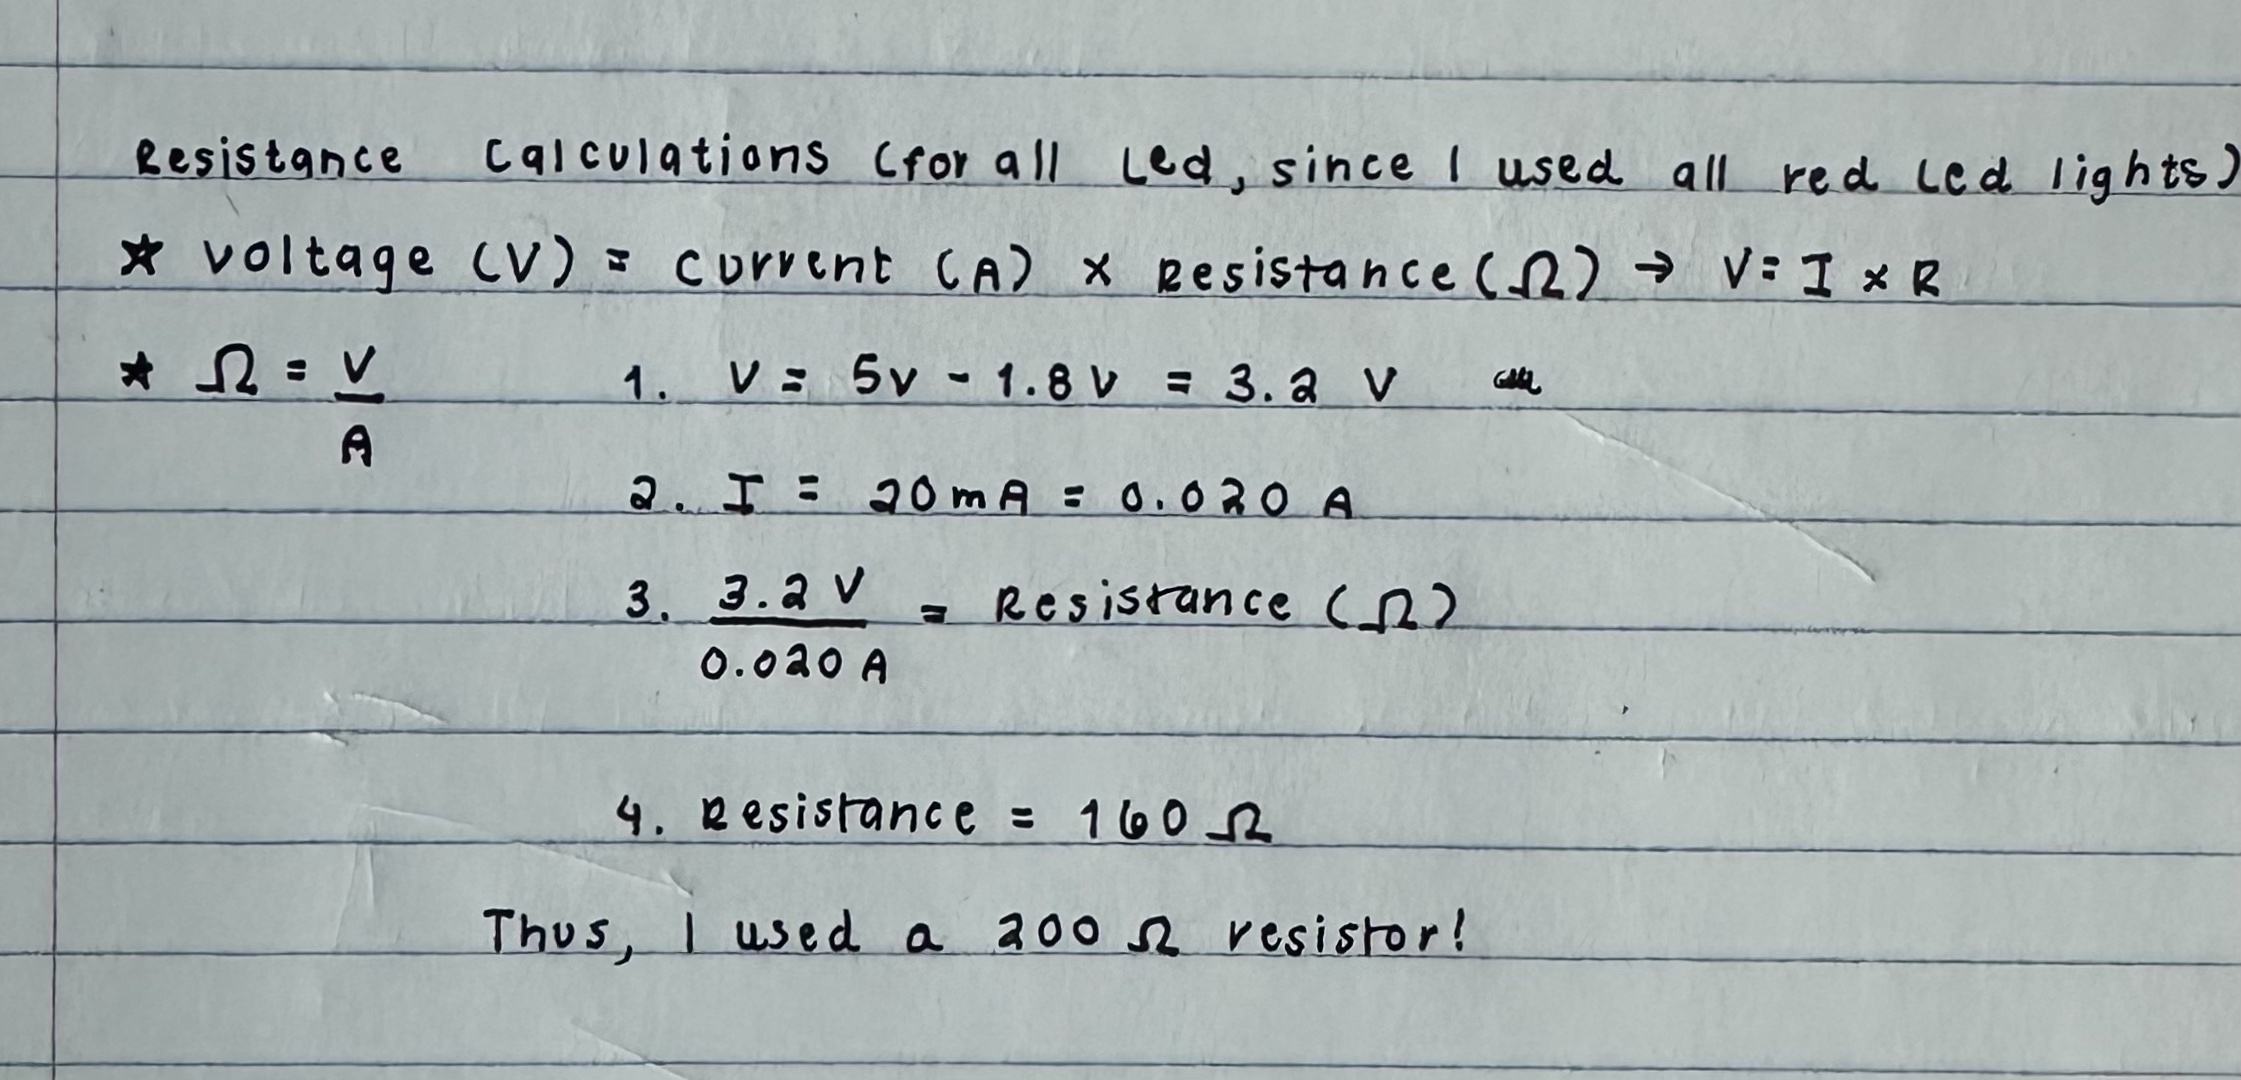 Resistance Calculations (for all Led, since I used all red Led lights)
* Voltage (V) = Current (A) x Resistance (Ω) → V = I x R
* Ω = V/A 1. V = 5v - 1.8v = 3.2 V
2. I = 20mA = 0.020 A
3. 3.2 V / 0.020 A = Resistance (Ω)
4. Resistance = 160 Ω
Thus, I used a 200 Ω resistor!